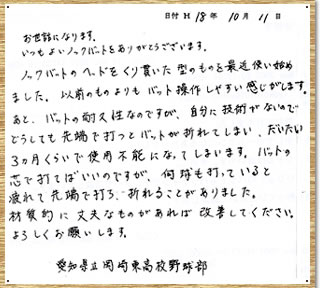 日付 H 18年 10月 11日
お世話になります。
いつもよいノックバットをありがとうございます。
ノックバットのヘッドをくり貫いた型のものを最近使い始め
ました。以前のものよりもバット操作しやすい感じがします。
あと、バットの耐久性なのですが、自分に技術がないので
どうしても先端で打つとバットが折れてしまい、だいたい
3ヵ月くらいで使用不能になってしまいます。バットの
芯で打てばいいのですが、何球も打っていると
疲れて先端で打ち、折れることがありました。
材質的に丈夫なものがあれば改善してください。
よろしくお願いします。
愛知県立岡崎東高校野球部